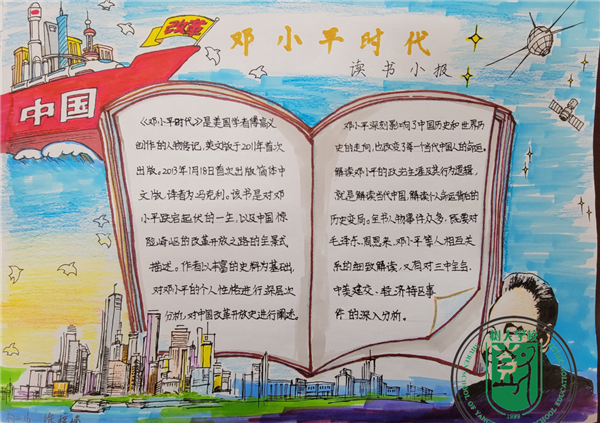 改革
中国
邓小平时代
读书小报
《邓小平时代》是美国学者傅高义
创作的人物传记,英文版于2011年首次
出版。2013年1月18日首次出版简体中
文版,译者为冯克利。该书是对邓
小平跌宕起伏的一生,以及中国惊
险崎岖的改革开放之路的全景式
描述。作者以丰富的史料为基础,
对邓小平的个人性格进行深层次
分析,对中国改革开放史进行阐述。
邓小平深刻影响了中国历史和世界历
史的走向,也改变了每一个当代中国人的命运。
解读邓小平的政治生涯及其行为逻辑,
就是解读当代中国,解读个人命运背后的
历史变局。全书人物事件众多,既要对
毛泽东、周恩来、邓小平等人相互关
系的细致解读,又有对三中全会、
中美建交、经济特区事
件的深入分析。
1999